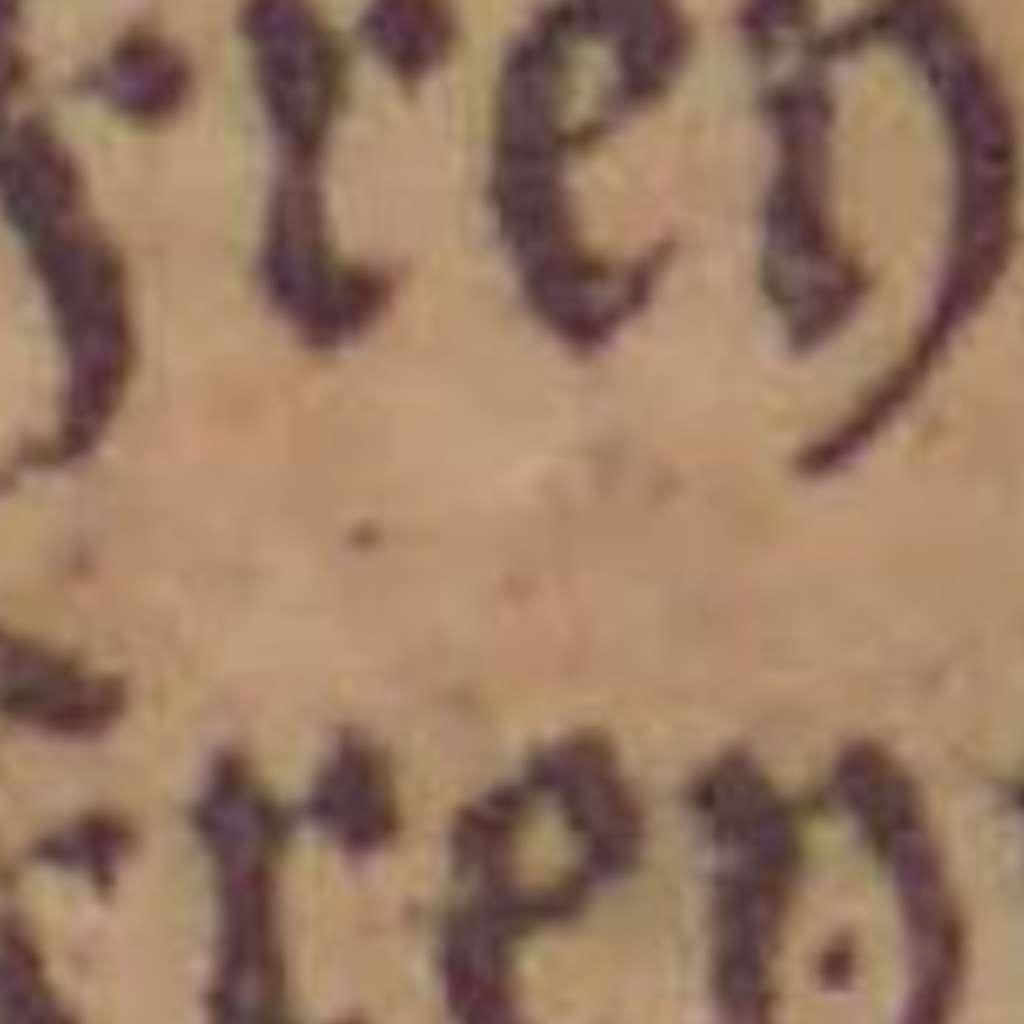 ren
ren